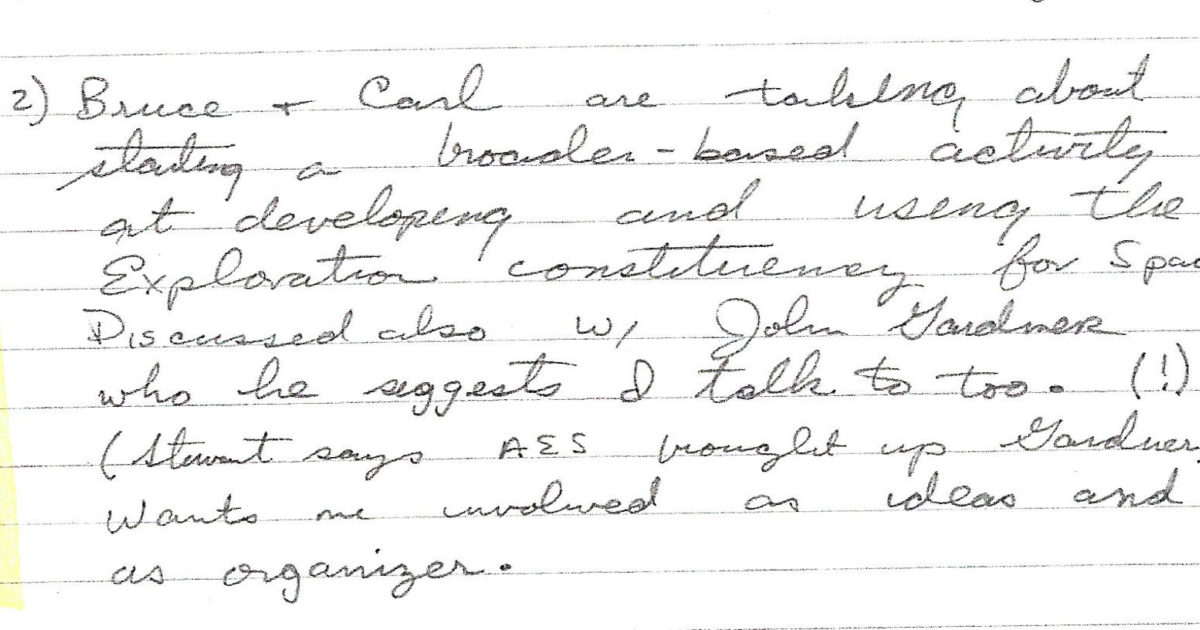 2) Bruce + Carl are talking about
starting a broader-based activity
at developing and using the
Exploration constituency for Spac
Discussed also w/ John Gardner
who he suggests I talk to too. (!)
(Stewart says AES brought up Gardner.
Wants me involved as ideas and
as organizer.